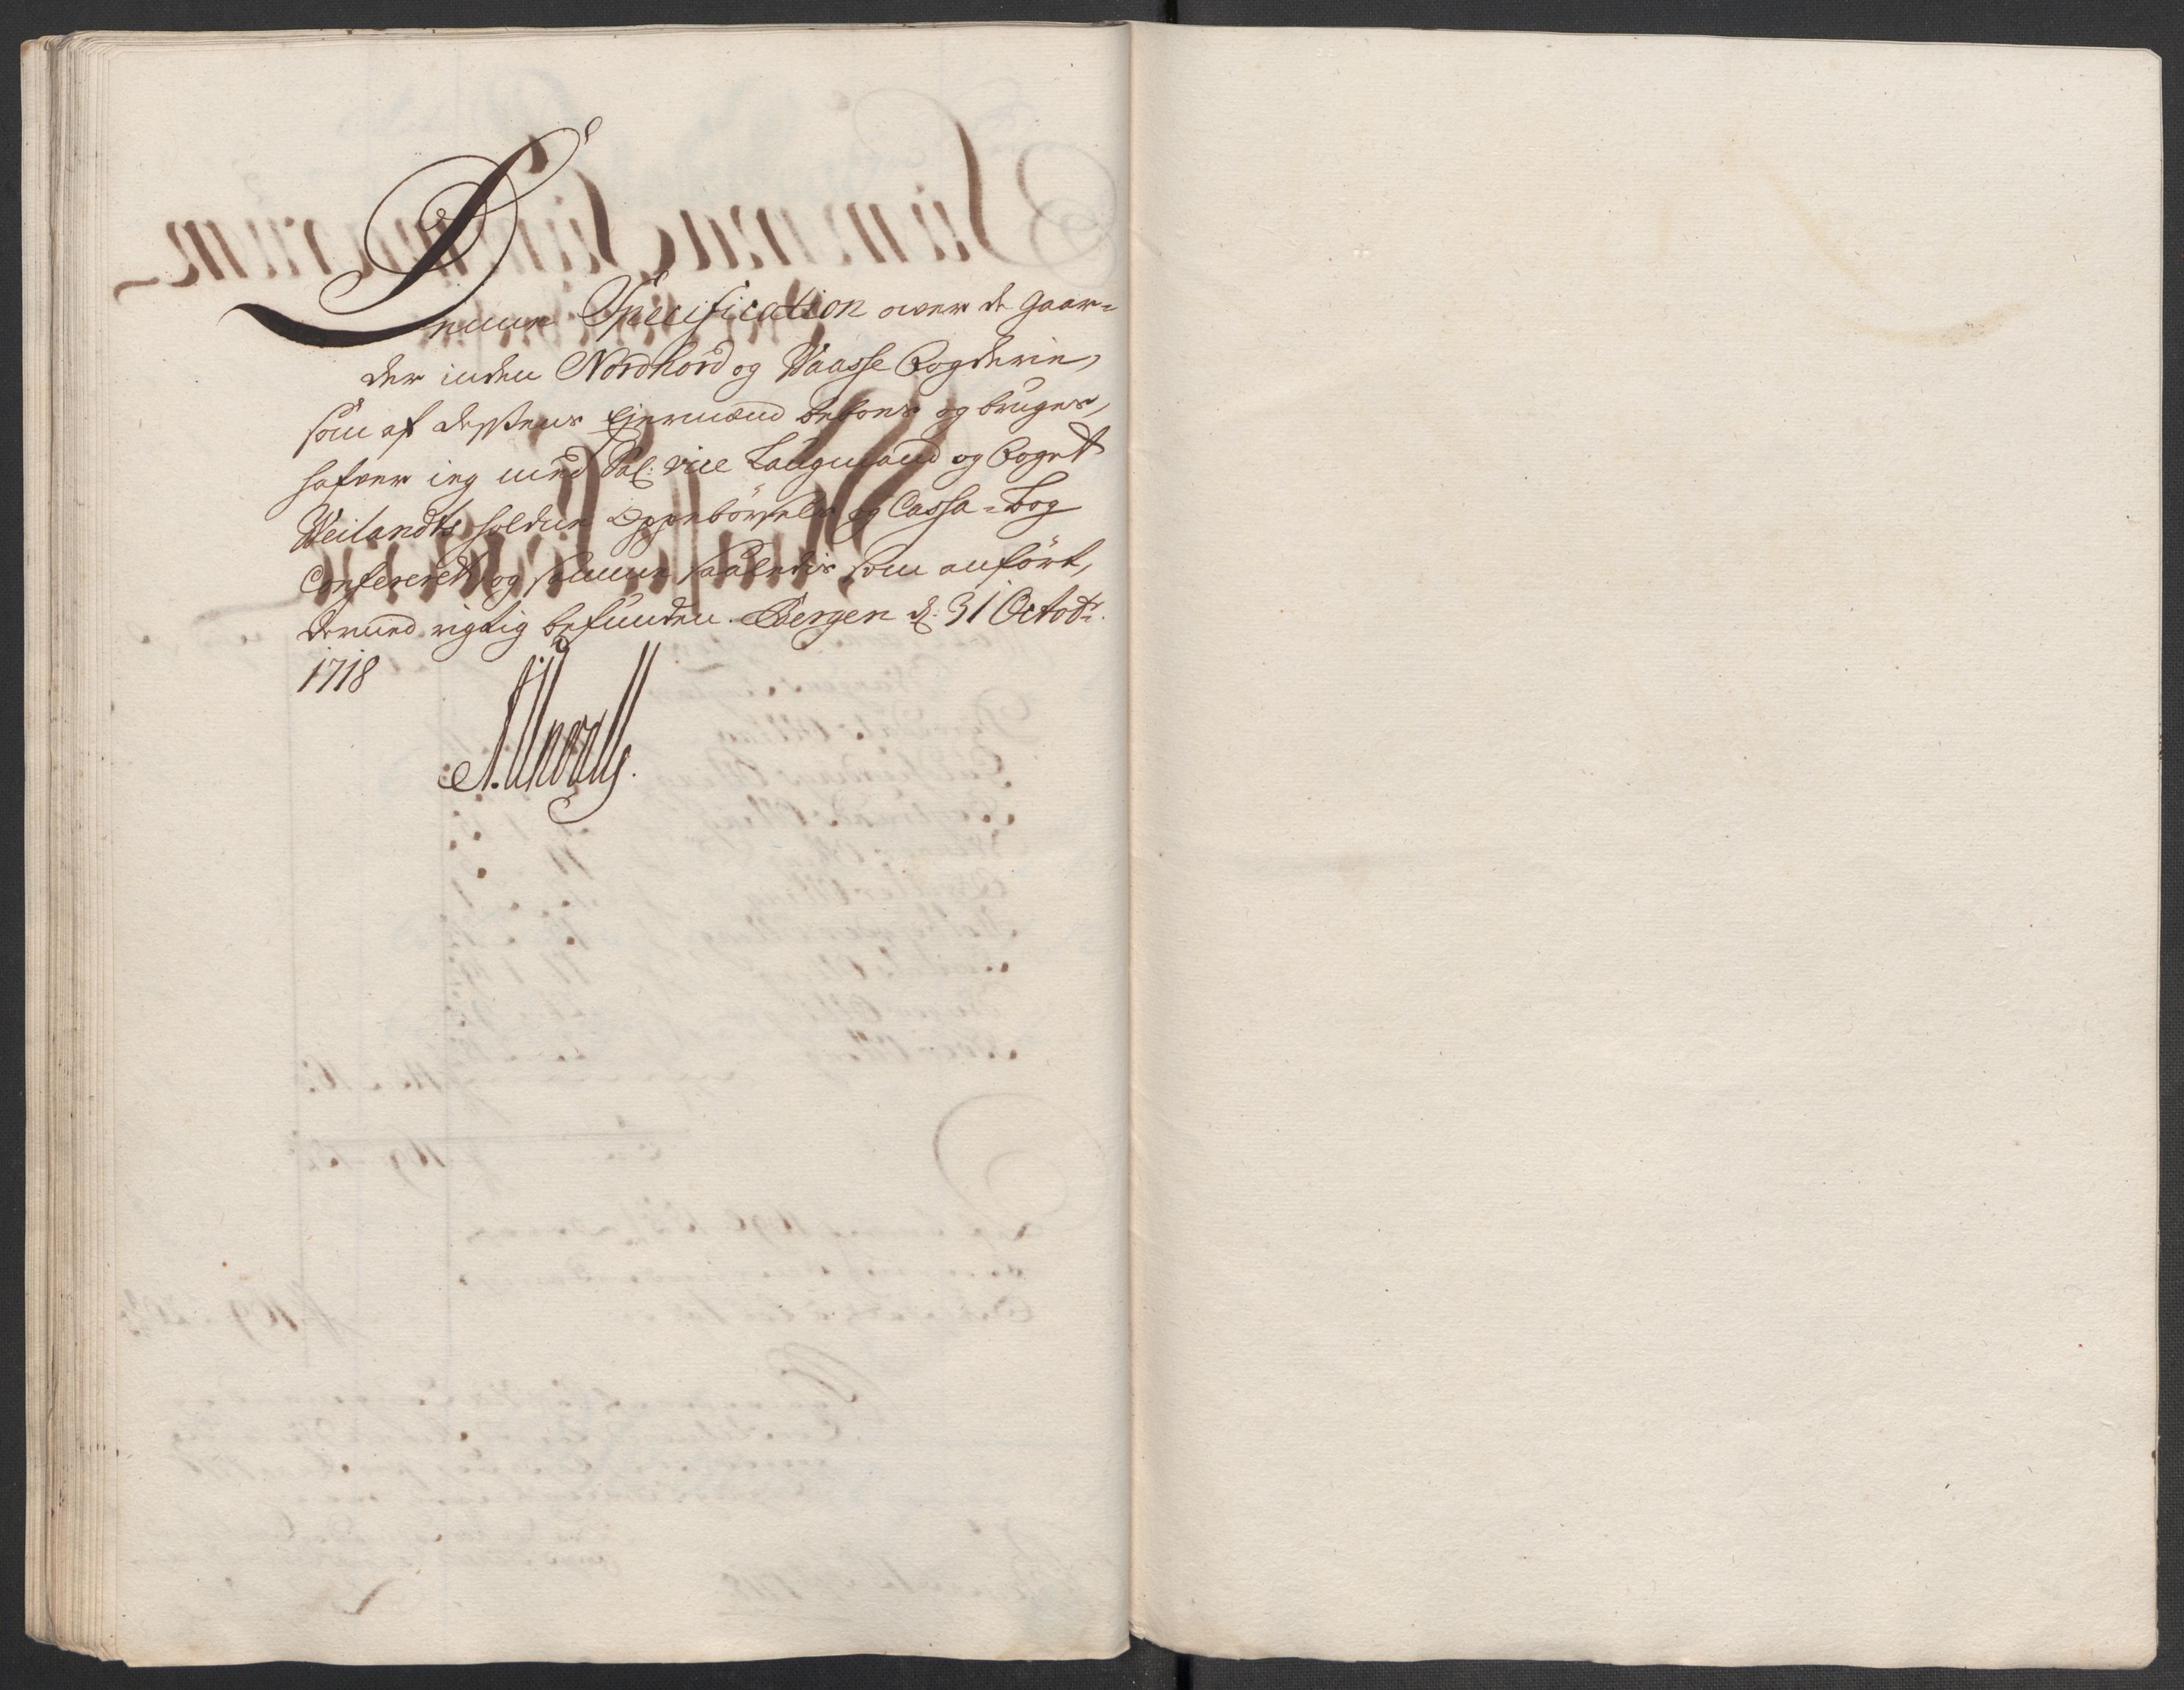 Denne Specification over de gaar-
der inden Nordhord og Waasse Fogderie,
som af dessens Eiermænd beboes og bruges,
hafver ieg med Sal: vice Laugmand og Foget
Weilandts holdne Oppebörsels og Cassa-Bog
Confereret og samme saaledis som anfört,
dermed rigtig befunden. Bergen d: 31 Octobr:
1718